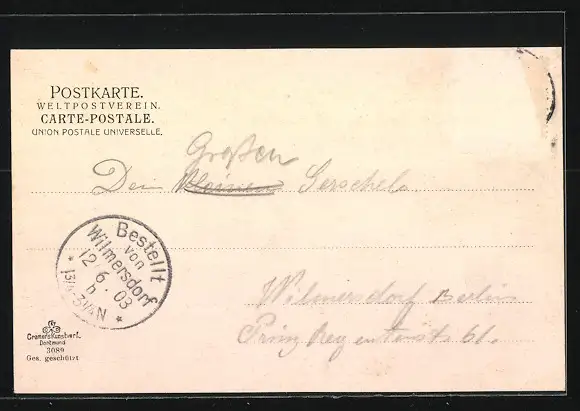 POSTKARTE.
WELTPOSTVEREIN.
CARTE-POSTALE.
UNION POSTALE UNIVERSELLE.
Großen
Dem Kleinen Gerschel.
Bestellt
von
Wilmersdorf
12/6.03
* 1¾-3¼N *
Wilmersdorf Berlin
Prinz Regentenstr. 61.
Cramers Kunstanst.
Dortmund
3089
Ges. geschützt